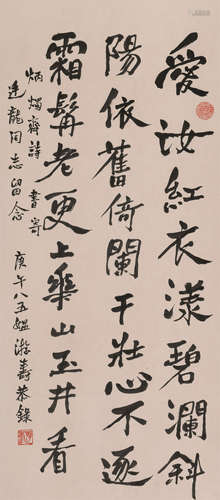 愛汝紅衣漾碧瀾斜
陽依舊倚闌干壯心不逐
霜髯老更上華山玉井看
炳燭齋詩 書寄
延龍同志留念
庚午八五媼游壽恭錄